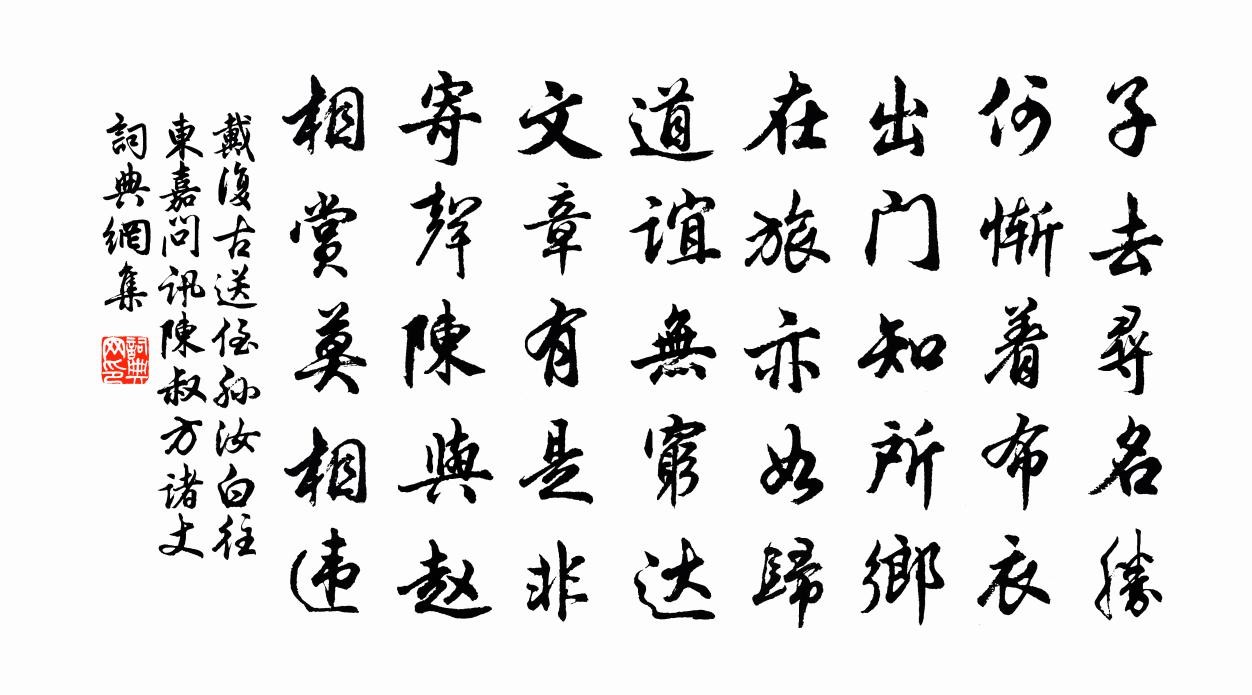 子去尋名勝
何慚着布衣
出门知所鄉
在旅亦如歸
道誼無窮达
文章有是非
寄聲陳與赵
相賞莫相违
戴復古送侄孙汝白往
東嘉問訊陳叔方諸丈
詞典網集
詞典网印